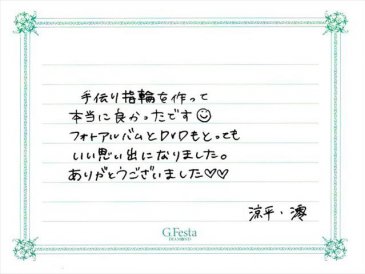 手伝り指輪を作って
本当に良かったです☺
フォトアルバムとDVDもとっても
いい思い出になりました。
ありがとうございました♡♡
涼平・澪
G.Festa
DIAMOND